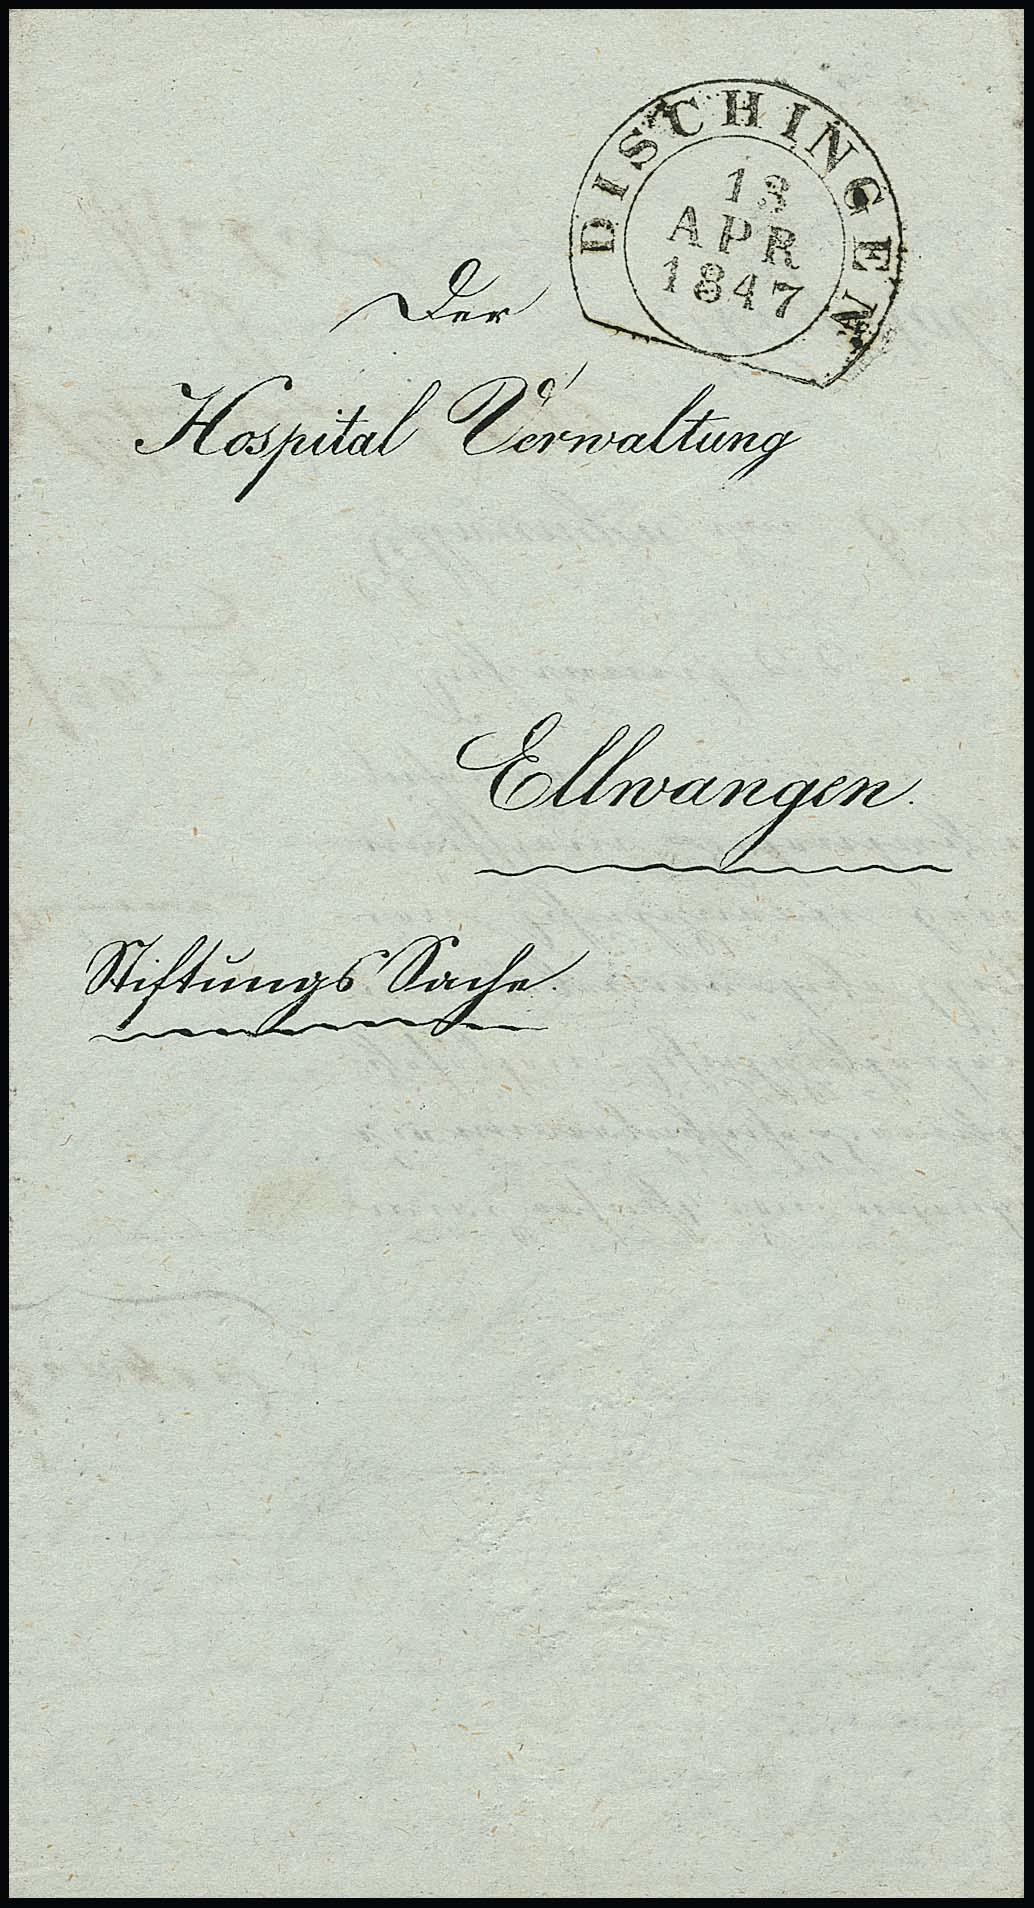 DISCHINGEN
13
APR
1847
Der
Hospital Verwaltung
Ellwangen.
Stiftungs Sache.